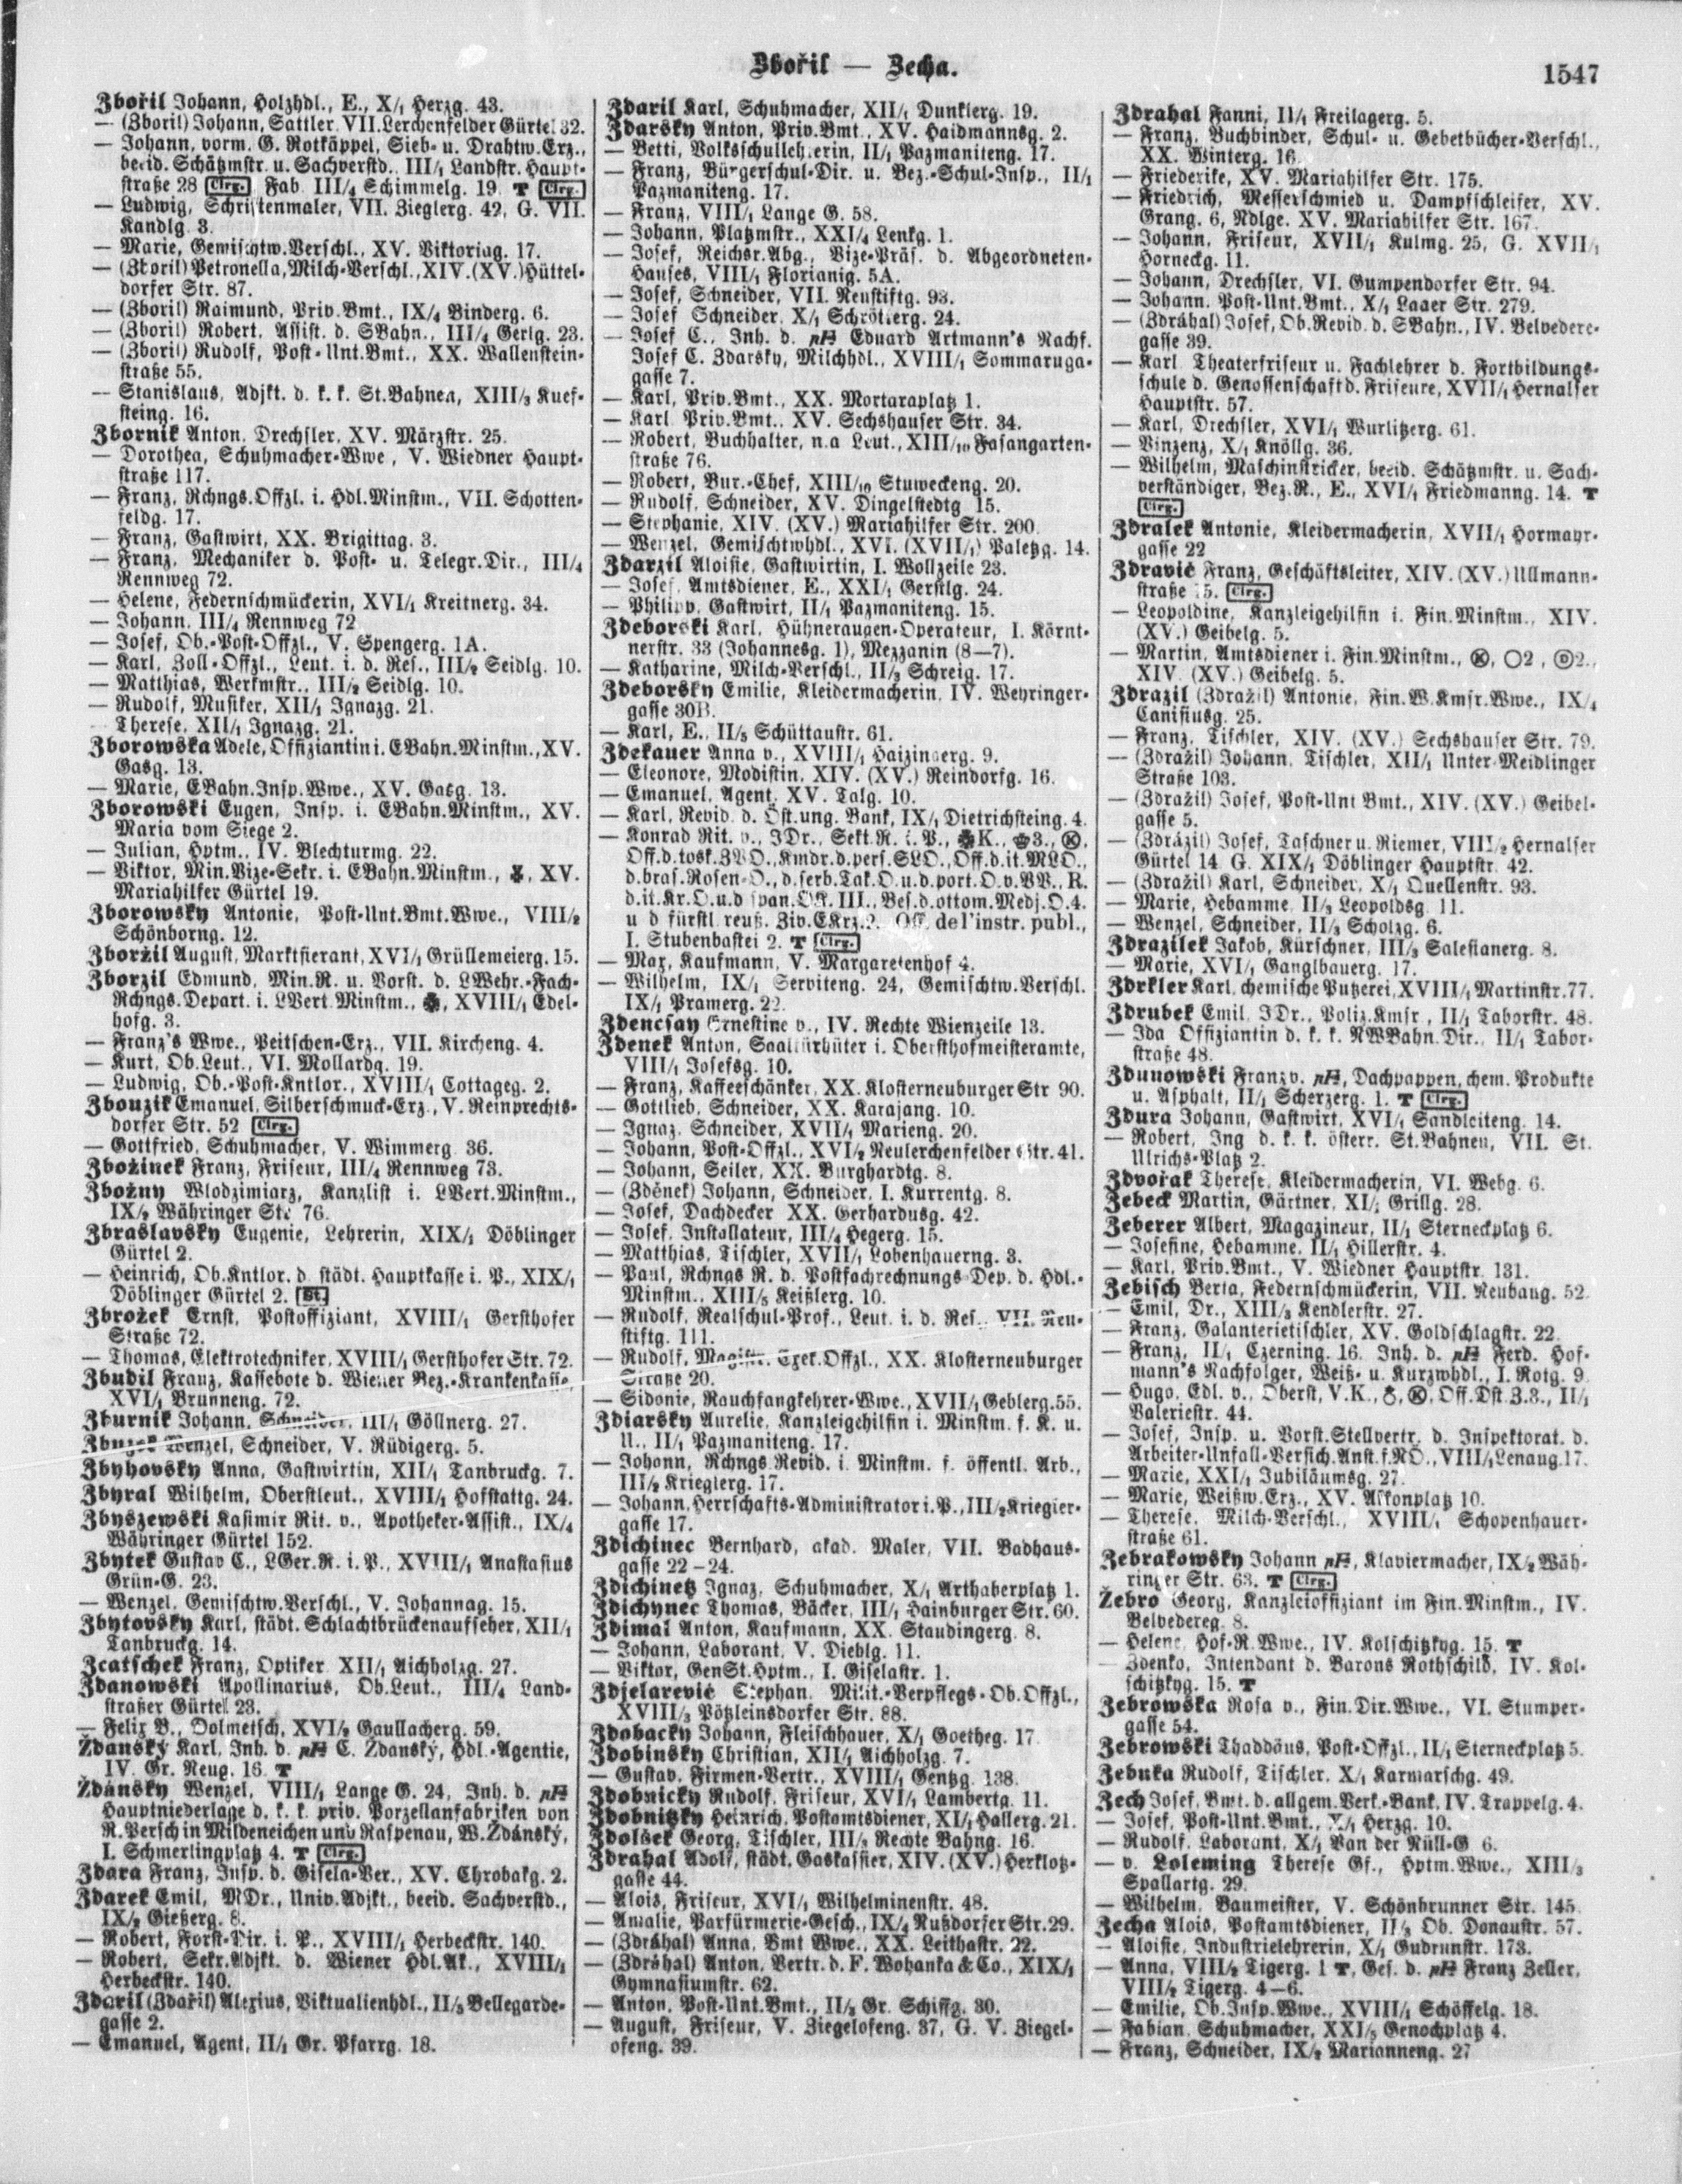 Zbořil — Zecha.
1547
Zbořil Johann, Holzhdl., E., X/1 Herzg. 43.
— (Zboril) Johann, Sattler, VII. Lerchenfelder Gürtel 32.
— Johann, vorm. G. Rotkäppel, Sieb- u. Drahtw.Erz.,
beeid. Schätzmstr. u. Sachverstd., III/1 Landstr. Haupt-
straße 28 Clrg. Fab. III/4 Schimmelg. 19. T Clrg.
— Ludwig, Schriftenmaler, VII. Zieglerg. 42, G. VII.
Kandlg. 3.
— Marie, Gemischtw.Verschl., XV. Viktoriag. 17.
— (Zboril) Petronella, Milch-Verschl., XIV. (XV.) Hüttel-
dorfer Str. 87.
— (Zboril) Raimund, Priv.Bmt., IX/4 Binderg. 6.
— (Zboril) Robert, Assist. d. SBahn., III/4 Gerlg. 23.
— (Zboril) Rudolf, Post-Unt.Bmt., XX. Wallenstein-
straße 55.
— Stanislaus, Adjkt. d. k. k. St.Bahnen, XIII/3 Kuef-
steing. 16.
Zbornik Anton, Drechsler, XV. Märzstr. 25.
— Dorothea, Schuhmacher-Wwe, V. Wiedner Haupt-
straße 117.
— Franz, Rchngs.Offzl. i. Hdl.Minstm., VII. Schotten-
feldg. 17.
— Franz, Gastwirt, XX. Brigittag. 3.
— Franz, Mechaniker d. Post- u. Telegr.Dir., III/4
Rennweg 72.
— Helene, Federnschmückerin, XVI/1 Kreitnerg. 34.
— Johann, III/4 Rennweg 72
— Josef, Ob.-Post-Offzl., V. Spengerg. 1A.
— Karl, Zoll-Offzl., Leut. i. d. Res., III/2 Seidlg. 10.
— Matthias, Werkmstr., III/2 Seidlg. 10.
— Rudolf, Musiker, XII/1 Ignazg. 21.
Therese, XII/1 Ignazg. 21.
Zborowska Adele, Offiziantin i. EBahn.Minstm., XV.
Gasg. 13.
— Marie, EBahn.Insp.Wwe., XV. Gasg. 13.
Zborowski Eugen, Insp. i. EBahn.Minstm., XV.
Maria vom Siege 2.
— Julian, Hptm., IV. Blechturmg. 22.
— Viktor, Min.Vize-Sekr. i. EBahn.Minstm., XV.
Mariahilfer Gürtel 19.
Zborowsky Antonie, Post-Unt.Bmt.Wwe., VIII/2
Schönborng. 12.
Zboržil August, Marktfierant, XVI/1 Grüllemeierg. 15.
Zborzil Edmund, Min.R. u. Vorst. d. LWehr.-Fach-
Rchngs.Depart. i. LVert.Minstm., XVIII/1 Edel-
hofg. 3.
— Franz's Wwe., Peitschen-Erz., VII. Kircheng. 4.
— Kurt, Ob.Leut., VI. Mollardg. 19.
— Ludwig, Ob.-Post-Kntlor., XVIII/1 Cottageg. 2.
Zbouzik Emanuel, Silberschmuck-Erz., V. Reinprechts-
dorfer Str. 52 Clrg.
— Gottfried, Schuhmacher, V. Wimmerg. 36.
Zbožinek Franz, Friseur, III/4 Rennweg 73.
Zbožny Wlodzimiarz, Kanzlist i. LVert.Minstm.,
IX/2 Währinger Str. 76.
Zbraslavsky Eugenie, Lehrerin, XIX/1 Döblinger
Gürtel 2.
— Heinrich, Ob.Kntlor. d. städt. Hauptkasse i. P., XIX/1
Döblinger Gürtel 2. St.
Zbrožek Ernst, Postoffiziant, XVIII/1 Gersthofer
Straße 72.
— Thomas, Elektrotechniker, XVIII/1 Gersthofer Str. 72.
Zbudil Franz, Kassebote d. Wiener Bez.-Krankenkasse,
XVI/1 Brunneng. 72.
Zburnik Johann, Schneider, III/1 Göllnerg. 27.
Wenzel, Schneider, V. Rüdigerg. 5.
Zbyhovsky Anna, Gastwirtin, XII/1 Tanbruckg. 7.
Zbyral Wilhelm, Oberstleut., XVIII/1 Hofstattg. 24.
Zbyszewski Kasimir Rit. v., Apotheker-Assist., IX/4
Währinger Gürtel 152.
Zbytek Gustav C., LGer.R. i. P., XVIII/1 Anastasius
Grün-G. 23.
— Wenzel, Gemischtw.Verschl., V. Johannag. 15.
Zbytovsky Karl, städt. Schlachtbrückenaufseher, XII/1
Tanbruckg. 14.
Zcatschek Franz, Optiker, XII/1 Aichholzg. 27.
Zdanowski Apollinarius, Ob.Leut., III/4 Land-
straßer Gürtel 23.
— Felix B., Dolmetsch, XVI/2 Gaullacherg. 59.
Ždanský Karl, Inh. d. pH C. Ždanský, Hdl.-Agentie,
IV. Gr. Neug. 16. T
Ždánsky Wenzel, VIII/1 Lange G. 24, Inh. d. pH
Hauptniederlage d. k. k. priv. Porzellanfabriken von
R. Persch in Mildeneichen und Raspenau, W. Ždánský,
I. Schmerlingplatz 4. T Clrg.
Zdara Franz, Insp. d. Gisela-Ver., XV. Chrobakg. 2.
Zdarek Emil, MDr., Univ.Adjkt., beeid. Sachverstd.,
IX/2 Gießerg. 8.
— Robert, Forst-Dir. i. P., XVIII/1 Herbeckstr. 140.
— Robert, Sekr.Adjkt. d. Wiener Hdl.Ak., XVIII/1
Herbeckstr. 140.
Zdaril (Zdařil) Alexius, Viktualienhdl., II/3 Bellegarde-
gasse 2.
— Emanuel, Agent, II/1 Gr. Pfarrg. 18.
Zdaril Karl, Schuhmacher, XII/1 Dunklerg. 19.
Zdarsky Anton, Priv.Bmt., XV. Haidmannsg. 2.
— Betti, Volksschullehrerin, II/1 Pazmaniteng. 17.
— Franz, Bürgerschul-Dir. u. Bez.-Schul-Insp., II/1
Pazmaniteng. 17.
— Franz, VIII/1 Lange G. 58.
— Johann, Platzmstr., XXI/4 Lenkg. 1.
— Josef, Reichsr.Abg., Vize-Präs. d. Abgeordneten-
Hauses, VIII/1 Florianig. 5A.
— Josef, Schneider, VII. Neustiftg. 93.
— Josef Schneider, X/1 Schrötterg. 24.
— Josef C., Inh. d. pH Eduard Artmann's Nachf.
Josef C. Zdarsky, Milchhdl., XVIII/1 Sommaruga-
gasse 7.
— Karl, Priv.Bmt., XX. Mortaraplatz 1.
— Karl, Priv.Bmt., XV. Sechshauser Str. 34.
— Robert, Buchhalter, n.a Leut., XIII/10 Fasangarten-
straße 76.
— Robert, Bur.-Chef, XIII/10 Stuweckeng. 20.
— Rudolf, Schneider, XV. Dingelstedtg 15.
— Stephanie, XIV. (XV.) Mariahilfer Str. 200.
— Wenzel, Gemischtwhdl., XVI. (XVII/1) Paletzg. 14.
Zdarzil Aloisie, Gastwirtin, I. Wollzeile 23.
— Josef, Amtsdiener, E., XXI/1 Gerstlg. 24.
— Philipp, Gastwirt, II/1 Pazmaniteng. 15.
Zdeborski Karl, Hühneraugen-Operateur, I. Kärnt-
nerstr. 33 (Johannesg. 1), Mezzanin (8—7).
— Katharine, Milch-Verschl., II/3 Schreig. 17.
Zdeborsky Emilie, Kleidermacherin, IV. Weyringer-
gasse 30B.
— Karl, E., II/5 Schüttaustr. 61.
Zdekauer Anna v., XVIII/1 Haizingerg. 9.
— Eleonore, Modistin, XIV. (XV.) Reindorfg. 16.
— Emanuel, Agent, XV. Talg. 10.
— Karl, Revid. d. Öst.ung. Bank, IX/1 Dietrichsteing. 4.
— Konrad Rit. v., JDr., Sekt.R. i. P., K., 3.,
Off.d.tosk.ZVO., Kmdr.d.pers.SLO., Off.d.it.MLO.,
d.bras.Rosen-O., d.serb.Tak.O.u.d.port.O.v.VV., R.
d.it.Kr.O.u.d span.OK.III., Bes.d.ottom.Medj.O.4.
u d fürstl. reuß. Ziv.EKrz.2. Off. de l'instr. publ.,
I. Stubenbastei 2. T Clrg.
— Max, Kaufmann, V. Margaretenhof 4.
— Wilhelm, IX/1 Serviteng. 24, Gemischtw.Verschl.
IX/1 Pramerg. 22.
Zdencsay Ernestine v., IV. Rechte Wienzeile 13.
Zdenek Anton, Saaltürhüter i. Obersthofmeisteramte,
VIII/1 Josefsg. 10.
— Franz, Kaffeeschänker, XX. Klosterneuburger Str 90.
— Gottlieb, Schneider, XX. Karajang. 10.
— Ignaz, Schneider, XVII/1 Marieng. 20.
— Johann, Post-Offzl., XVI/2 Neulerchenfelder Str. 41.
— Johann, Seiler, XX. Burghardtg. 8.
— (Zděnek) Johann, Schneider, I. Kurrentg. 8.
— Josef, Dachdecker XX. Gerhardusg. 42.
— Josef, Installateur, III/4 Hegerg. 15.
— Matthias, Tischler, XVII/1 Lobenhauerng. 3.
— Paul, Rchngs R. d. Postfachrechnungs-Dep. d. Hdl.-
Minstm., XIII/5 Keißlerg. 10.
— Rudolf, Realschul-Prof., Leut. i. d. Res., VII. Neu-
stiftg. 111.
— Rudolf, Magistr. Exek.Offzl., XX. Klosterneuburger
Straße 20.
— Sidonie, Rauchfangkehrer-Wwe., XVII/1 Geblerg. 55.
Zdiarsky Aurelie, Kanzleigehilfin i. Minstm. f. K. u.
U., II/1 Pazmaniteng. 17.
— Johann, Rchngs.Revid. i. Minstm. f. öffentl. Arb.,
III/2 Krieglerg. 17.
— Johann, Herrschafts-Administrator i. P., III/2 Kriegler-
gasse 17.
Zdichinec Bernhard, akad. Maler, VII. Badhaus-
gasse 22–24.
Zdichinetz Ignaz, Schuhmacher, X/1 Arthaberplatz 1.
Zdichynec Thomas, Bäcker, III/1 Hainburger Str. 60.
Zdimal Anton, Kaufmann, XX. Staudingerg. 8.
— Johann, Laborant, V. Dieblg. 11.
— Viktor, GenSt.Hptm., I. Giselastr. 1.
Zdjelarević Stephan, Milit.-Verpflegs-Ob.Offzl.,
XVIII/3 Pötzleinsdorfer Str. 88.
Zdobacky Johann, Fleischhauer, X/1 Goetheg. 17.
Zdobinsky Christian, XII/1 Aichholzg. 7.
— Gustav, Firmen-Vertr., XVIII/1 Gentzg. 138.
Zdobnicky Rudolf, Friseur, XVI/1 Lambertg. 11.
Zdobnitzky Heinrich, Postamtsdiener, XI/1 Hallerg. 21.
Zdolšek Georg, Tischler, III/2 Rechte Bahng. 16.
Zdrahal Adolf, städt. Gaskassier, XIV. (XV.) Herklotz-
gasse 44.
— Alois, Friseur, XVI/1 Wilhelminenstr. 48.
— Amalie, Parfürmerie-Gesch., IX/4 Nußdorfer Str. 29.
— (Zdráhal) Anna, Bmt Wwe., XX. Leithastr. 22.
— (Zdráhal) Anton, Vertr. d. F. Wohanka & Co., XIX/1
Gymnasiumstr. 62.
— Anton, Post-Unt.Bmt., II/2 Gr. Schiffg. 30.
— August, Friseur, V. Ziegelofeng. 37, G. V. Ziegel-
ofeng. 39.
Zdrahal Fanni, II/1 Freilagerg. 5.
— Franz, Buchbinder, Schul- u. Gebetbücher-Verschl.,
XX. Winterg. 16.
— Friederike, XV. Mariahilfer Str. 175.
— Friedrich, Messerschmied u. Dampfschleifer, XV.
Grang. 6, Ndlge. XV. Mariahilfer Str. 167.
— Johann, Friseur, XVII/1 Kulmg. 25, G. XVII/1
Horneckg. 11.
— Johann, Drechsler, VI. Gumpendorfer Str. 94.
— Johann, Post-Unt.Bmt., X/1 Laaer Str. 279.
— (Zdráhal) Josef, Ob.Revid. d. SBahn., IV. Belvedere-
gasse 39.
— Karl Theaterfriseur u. Fachlehrer d. Fortbildungs-
schule d. Genossenschaft d. Friseure, XVII/1 Hernalser
Hauptstr. 57.
— Karl, Drechsler, XVI/1 Wurlitzerg. 61.
— Vinzenz, X/1 Knöllg. 36.
— Wilhelm, Maschinstricker, beeid. Schätzmstr. u. Sach-
verständiger, Bez.R., E., XVI/1 Friedmanng. 14. T
Clrg.
Zdralek Antonie, Kleidermacherin, XVII/1 Hormayr-
gasse 22
Zdravić Franz, Geschäftsleiter, XIV. (XV.) Ullmann-
straße 15. Clrg.
— Leopoldine, Kanzleigehilfin i. Fin.Minstm., XIV.
(XV.) Geibelg. 5.
— Martin, Amtsdiener i. Fin.Minstm., 2, 2.,
XIV. (XV.) Geibelg. 5.
Zdrazil (Zdražil) Antonie, Fin.W.Kmsr.Wwe., IX/4
Canisiusg. 25.
— Franz, Tischler, XIV. (XV.) Sechshauser Str. 79.
— (Zdražil) Johann, Tischler, XII/1 Unter-Meidlinger
Straße 103.
— (Zdražil) Josef, Post-Unt Bmt., XIV. (XV.) Geibel-
gasse 5.
— (Zdrázil) Josef, Taschner u. Riemer, VIII/2 Hernalser
Gürtel 14 G. XIX/1 Döblinger Hauptstr. 42.
— (Zdražil) Karl, Schneider, X/1 Quellenstr. 93.
— Marie, Hebamme, II/3 Leopoldsg. 11.
— Wenzel, Schneider, II/3 Scholzg. 6.
Zdrazilek Jakob, Kürschner, III/3 Salesianerg. 8.
— Marie, XVI/1 Ganglbauerg. 17.
Zdrkler Karl, chemische Putzerei, XVIII/1 Martinstr. 77.
Zdrubek Emil, JDr., Poliz.Kmsr., II/1 Taborstr. 48.
— Ida Offiziantin d. k. k. NWBahn.Dir., II/1 Tabor-
straße 48.
Zdunowski Franz v. pH, Dachpappen, chem. Produkte
u. Asphalt, II/1 Scherzerg. 1. T Clrg.
Zdura Johann, Gastwirt, XVI/1 Sandleiteng. 14.
— Robert, Ing d. k. k. österr. St.Bahnen, VII. St.
Ulrichs-Platz 2.
Zdvořak Therese, Kleidermacherin, VI. Webg. 6.
Zebeck Martin, Gärtner, XI/1 Grillg. 28.
Zeberer Albert, Magazineur, II/1 Sterneckplatz 6.
— Josefine, Hebamme, II/1 Hillerstr. 4.
— Karl, Priv.Bmt., V. Wiedner Hauptstr. 131.
Zebisch Berta, Federnschmückerin, VII. Neubaug. 52.
— Emil, Dr., XIII/3 Kendlerstr. 27.
— Franz, Galanterietischler, XV. Goldschlagstr. 22.
— Franz, II/1 Czerning. 16. Inh. d. pH Ferd. Hof-
mann's Nachfolger, Weiß- u. Kurzwhdl., I. Rotg. 9.
— Hugo, Edl. v., Oberst, V.K., Off.Dst.Z.3., II/1
Valeriestr. 44.
— Josef, Insp. u. Vorst.Stellvertr. d. Inspektorat. d.
Arbeiter-Unfall-Versich.Anst.f.NÖ., VIII/1 Lenaug. 17.
— Marie, XXI/1 Jubiläumsg. 27.
— Marie, Weißw.Erz., XV. Akkonplatz 10.
— Therese, Milch-Verschl., XVIII/1 Schopenhauer-
straße 61.
Zebrakowsky Johann pH, Klaviermacher, IX/2 Wäh-
ringer Str. 63. T Clrg.
Žebro Georg, Kanzleioffiziant im Fin.Minstm., IV.
Belvedereg. 8.
— Helene, Hof-R.Wwe., IV. Kolschitzkyg. 15. T
— Zdenko, Intendant d. Barons Rothschild, IV. Kol-
schitzkyg. 15. T
Zebrowska Rosa v., Fin.Dir.Wwe., VI. Stumper-
gasse 54.
Zebrowski Thaddäus, Post-Offzl., II/1 Sterneckplatz 5.
Zebuka Rudolf, Tischler, X/1 Karmarschg. 49.
Zech Josef, Bmt. d. allgem. Verk.-Bank, IV. Trappelg. 4.
— Josef, Post-Unt.Bmt., X/1 Herzg. 10.
— Rudolf, Laborant, X/1 Van der Nüll-G 6.
— v. Loleming Therese Gf., Hptm.Wwe., XIII/3
Spallartg. 29.
— Wilhelm, Baumeister, V. Schönbrunner Str. 145.
Zecha Alois, Postamtsdiener, II/3 Ob. Donaustr. 57.
— Aloisie, Industrielehrerin, X/1 Gudrunstr. 173.
— Anna, VIII/2 Tigerg. 1 T, Ges. d. pH Franz Zeller,
VIII/2 Tigerg. 4—6.
— Emilie, Ob.Insp.Wwe., XVIII/1 Schöffelg. 18.
— Fabian, Schuhmacher, XXI/5 Genochplatz 4.
— Franz, Schneider, IX/2 Marianneng. 27